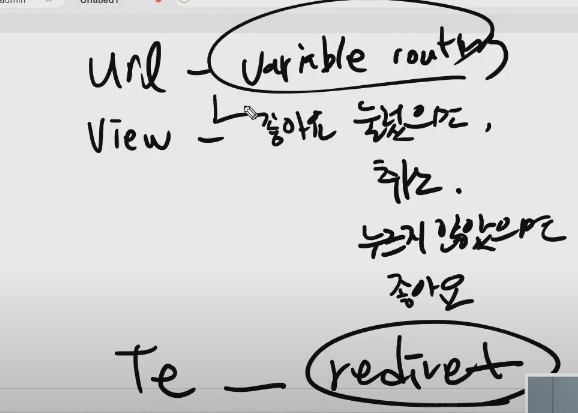 admin Untitled1
url - variable routing
view - 좋아요 눌렀으면,
취소.
누르지 않았으면
좋아요
Te - redirect